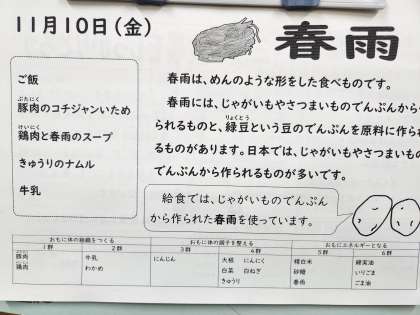 11月10日(金)
春雨
ご飯
ぶたにく
豚肉のコチジャンいため
けいにく
鶏肉と春雨のスープ
きゅうりのナムル
牛乳
春雨は、めんのような形をした食べものです。
春雨には、じゃがいもやさつまいものでんぷんから
られるものと、緑豆という豆のでんぷんを原料に作ら
りょくとう
るものがあります。日本では、じゃがいもやさつまいも
でんぷんから作られるものが多いです。
給食では、じゃがいものでんぷん
から作られた春雨を使っています。
おもに体の組織をつくる おもに体の調子を整える おもにエネルギーとなる
1群 2群 3群 4群 5群 6群
豚肉 牛乳 にんじん 大根 にんにく 精白米 綿実油
鶏肉 わかめ 白菜 白ねぎ 砂糖 いりごま
きゅうり 春雨 ごま油